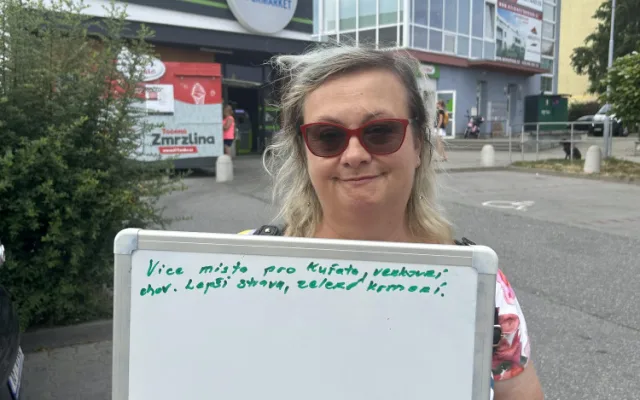 MARKET
Točená
Zmrzlina
Vice místa pro Kuřata, venkovní
chov. Lepší strava, zelené krmení.